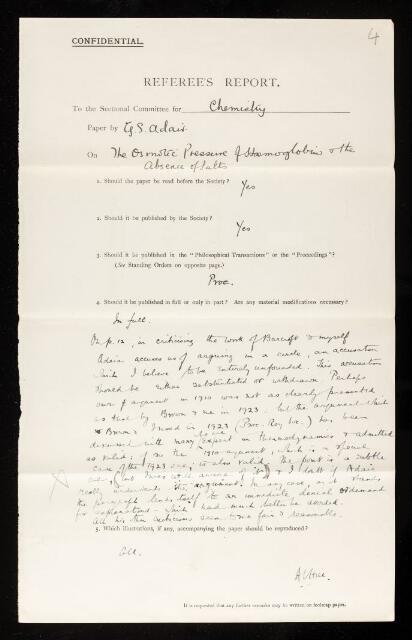 4
CONFIDENTIAL.
REFEREE'S REPORT.
To the Sectional Committee for Chemistry
Paper by G.S. Adair
On The Osmotic Pressure of Haemoglobin in the
Absence of Salts
1. Should the paper be read before the Society? Yes
2. Should it be published by the Society?
Yes
3. Should it be published in the "Philosophical Transactions" or the "Proceedings"?
(See Standing Orders on opposite page.)
Proc.
4. Should it be published in full or only in part? Are any material modifications necessary?
In full.
On p. 12, in criticising the work of Barcroft & myself
Adair accuses us of arguing in a circle, an accusation
which I believe to be entirely unfounded. This accusation
should be either substantiated or withdrawn. Perhaps
our argument in 1910 was not as clearly presented
as that by Brown & me in 1923. but the argument which
Brown & I used in 1923 (Proc. Roy. Soc.) has been
discussed with many expert in thermodynamics & admitted
as valid: if so the 1910 argument, which is a special
case of the 1923 one, is also valid. The point is a subtle
one, & I doubt if Adair
really understands the argument. In any case, as it stands
the paragraph lends itself to an immediate denial & demand
for explanation - which had much better be avoided.
All his other criticisms seem to me fair & reasonable.
5. Which illustrations, if any, accompanying the paper should be reproduced?
All.
A V Hill.
It is requested that any further remarks may be written on foolscap paper.